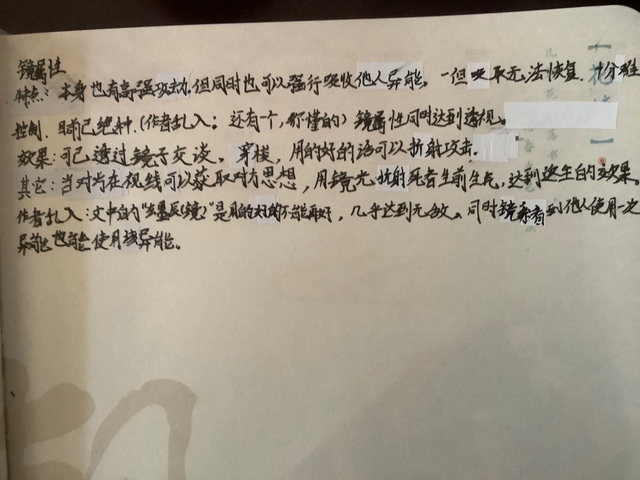 镜属性
特点：本身也有高强攻击，但同时也可以强行吸收他人异能，一但吸取无法恢复，十分难
控制．目前已绝种．（作者乱入：还有一个，你懂的）镜属性同时达到透视。
效果：可已透过镜子交谈。穿梭，用的好的话可以折射攻击．
其它：当对方在视线可以获取对方思想，用镜光折射死者生前生气，达到逐生白的效果。
作者乱入：文中的"辰镜"是用的好的不能再好，几乎达到无敌。同时镜看到他人使用一次
异能也能使用该异能。